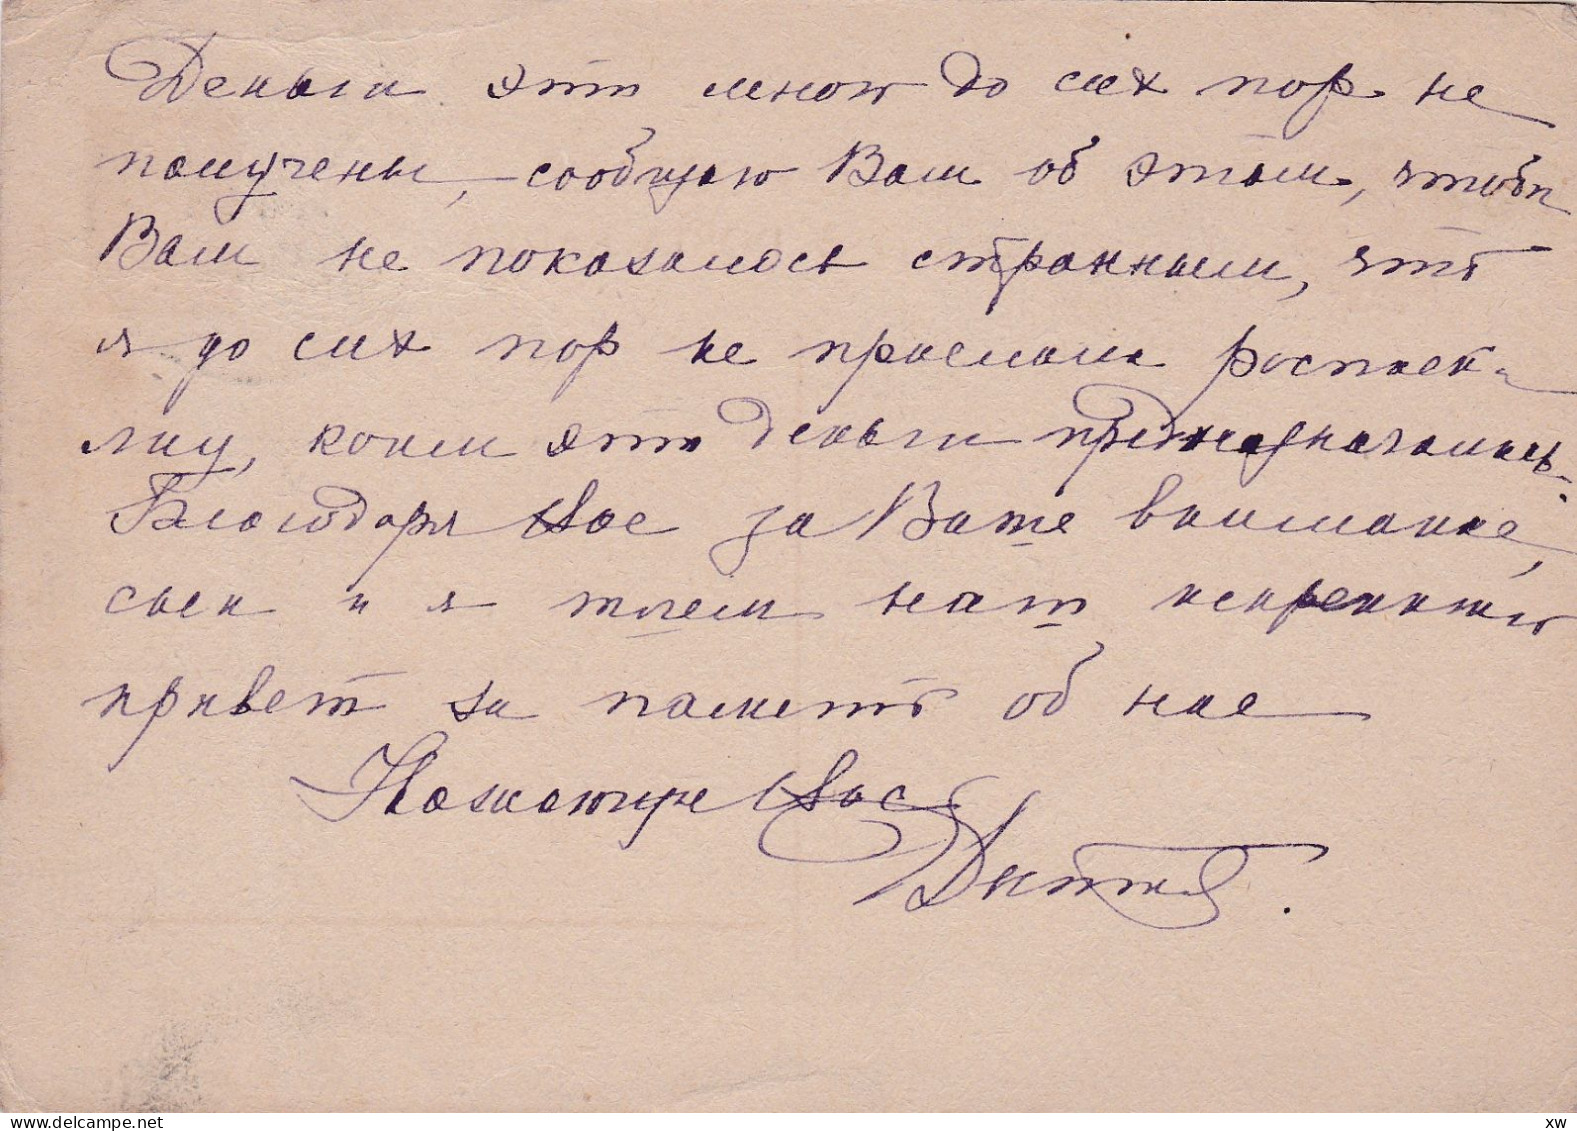 Деньги эти мною до сих пор не
получены, сообщаю Вам об этом, чтобы
Вам не показалось странным, что
я до сих пор не прислала расписк-
ку, кому эти деньги предназначались.
Благодаря Вас за Ваше внимание,
шлем наш искренний
привет за память об нас
Уважающие Вас
delcampe.net
xw